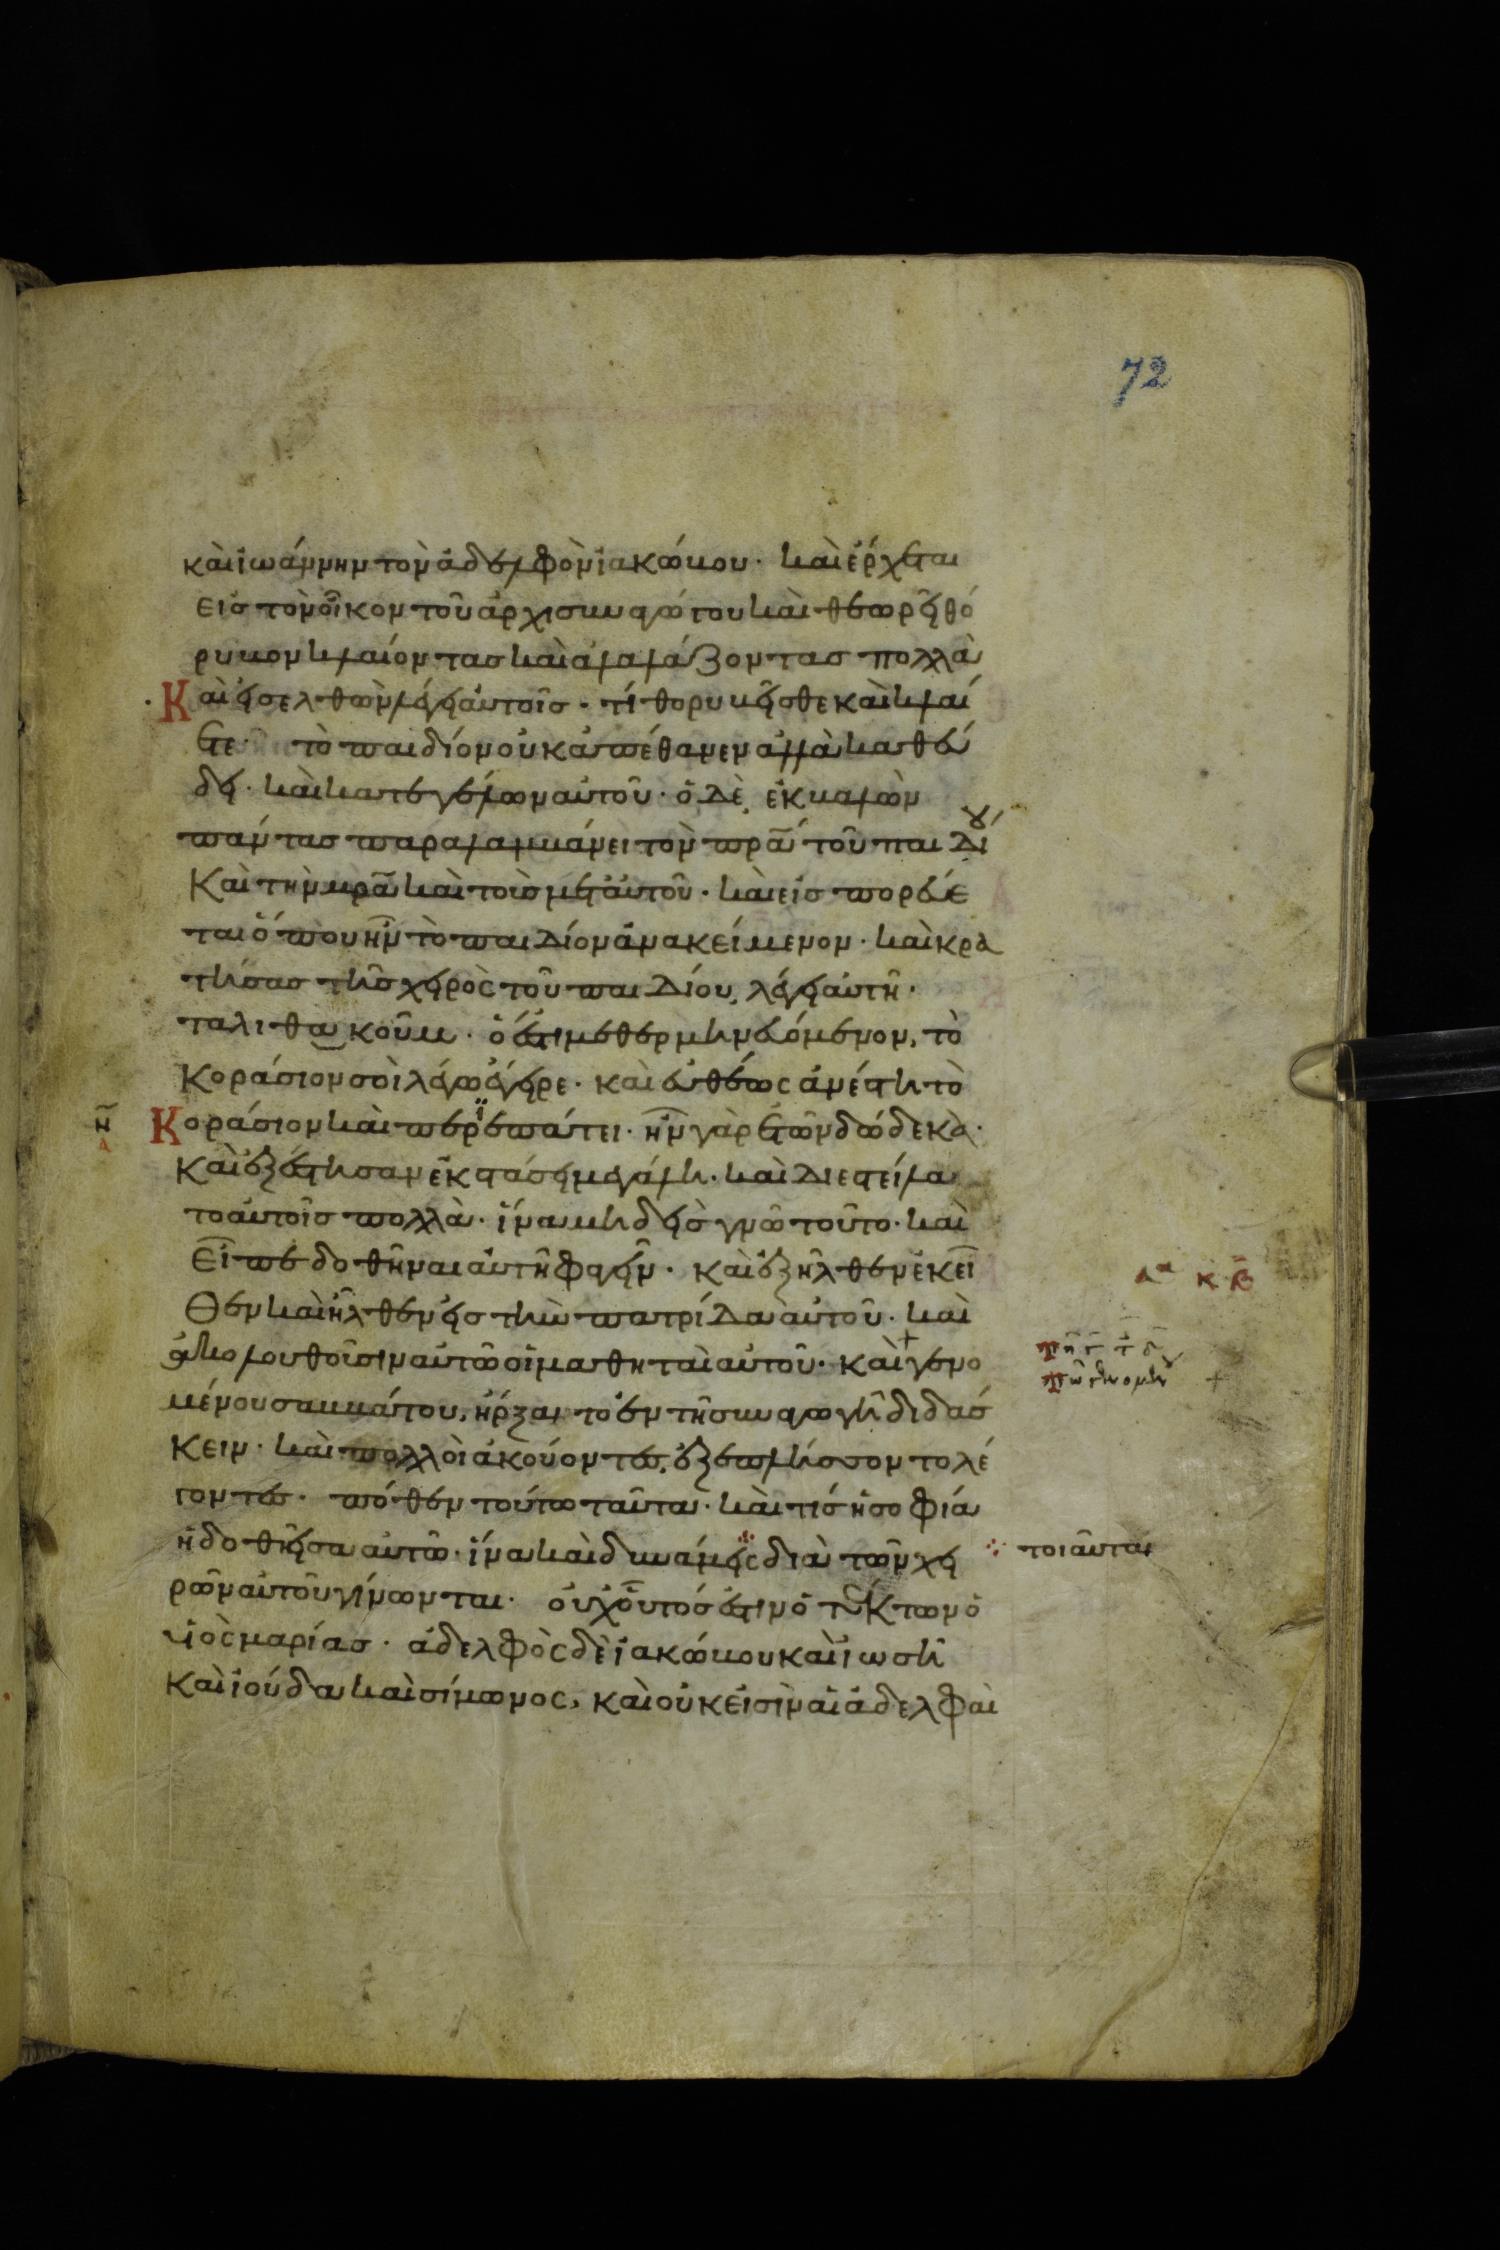 72
καὶ ἰωάννην τὸν ἀδελφὸν ἰακώβου· καὶ ἔρχεται
εἰς τὸν οἶκον τοῦ ἀρχισυναγώγου καὶ θεωρεῖ θό
ρυβον κλαίοντας καὶ ἀλαλάζοντας πολλὰ
Καὶ εἰσελθὼν λέγει αὐτοῖς· τί θορυβεῖσθε καὶ κλαί
ετε· τὸ παιδίον οὐκ ἀπέθανεν ἀλλὰ καθεύ
δει· καὶ κατεγέλων αὐτοῦ· ὁ δὲ ἐκβαλὼν
πάντας παραλαμβάνει τὸν πρ̅α τοῦ παιδίου
Καὶ τὴν μρ̅α καὶ τοὺς μετ αὐτοῦ· καὶ εἰσπορεύε
ται ὅπου ἦν τὸ παιδίον ἀνακείμενον· καὶ κρα
τήσας τῆς χειρὸς τοῦ παιδίου, λέγει αὐτῆ·
ταλιθα κοῦμ· ὅ ἐστι μεθερμηνευόμενον, τὸ
Κοράσιον σοὶ λέγω ἔγειρε· καὶ εὐθέως ἀνέστη τὸ
Κοράσιον καὶ περιεπάτει· ἦν γὰρ ἐτῶν δώδεκα·
Καὶ ἐξέστησαν ἐκστάσει μεγάλη· καὶ διεστείλα
το αὐτοῖς πολλὰ· ἵνα μηδεὶς γνῶ τοῦτο· καὶ
Εἶπε δοθῆναι αὐτῆ φαγεῖν· καὶ ἐξῆλθεν ἐκεῖ
Θεν καὶ ἦλθεν εἰς τὴν πατρίδα αὐτοῦ· καὶ
ἀκολουθοῦσιν αὐτῶ οἱ μαθηταὶ αὐτοῦ· καὶ γενο
μένου σαββάτου, ἤρξατο ἐν τῆ συναγωγῆ διδάσ
Κειν· καὶ πολλοὶ ἀκούοντες, ἐξεπλήσσοντο λέ
γοντες· πόθεν τούτω ταῦτα· καὶ τίς ἡ σοφία
ἡ δοθεῖσα αὐτῶ· ἵνα καὶ δυνάμεις διὰ τῶν χει
τοιαῦται
ρῶν αὐτοῦ γίνωνται· οὐχ οὗτός ἐστιν ὁ τέκτων ὁ
υἱὸς μαρίας· ἀδελφὸς δὲ ἰακώβου καὶ ἰωσῆ
Καὶ ἰούδα καὶ σίμωνος, καὶ οὐκ εἰσὶν αἱ ἀδελφαὶ